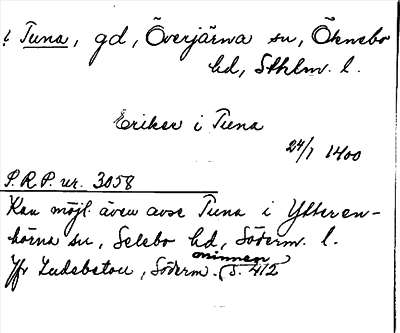 i Tuna, gd, Överjärna sn, Öknebo
hd, Sthlm. l.
Eriker i Tuna
24/1 1400
P.R.P. nr. 3058
Kan möjl. även avse Tuna i Ytteren-
hörna sn, Selebo hd, Söderm. l.
Jfr Ludabetou, Söderm. minnen, S. 412